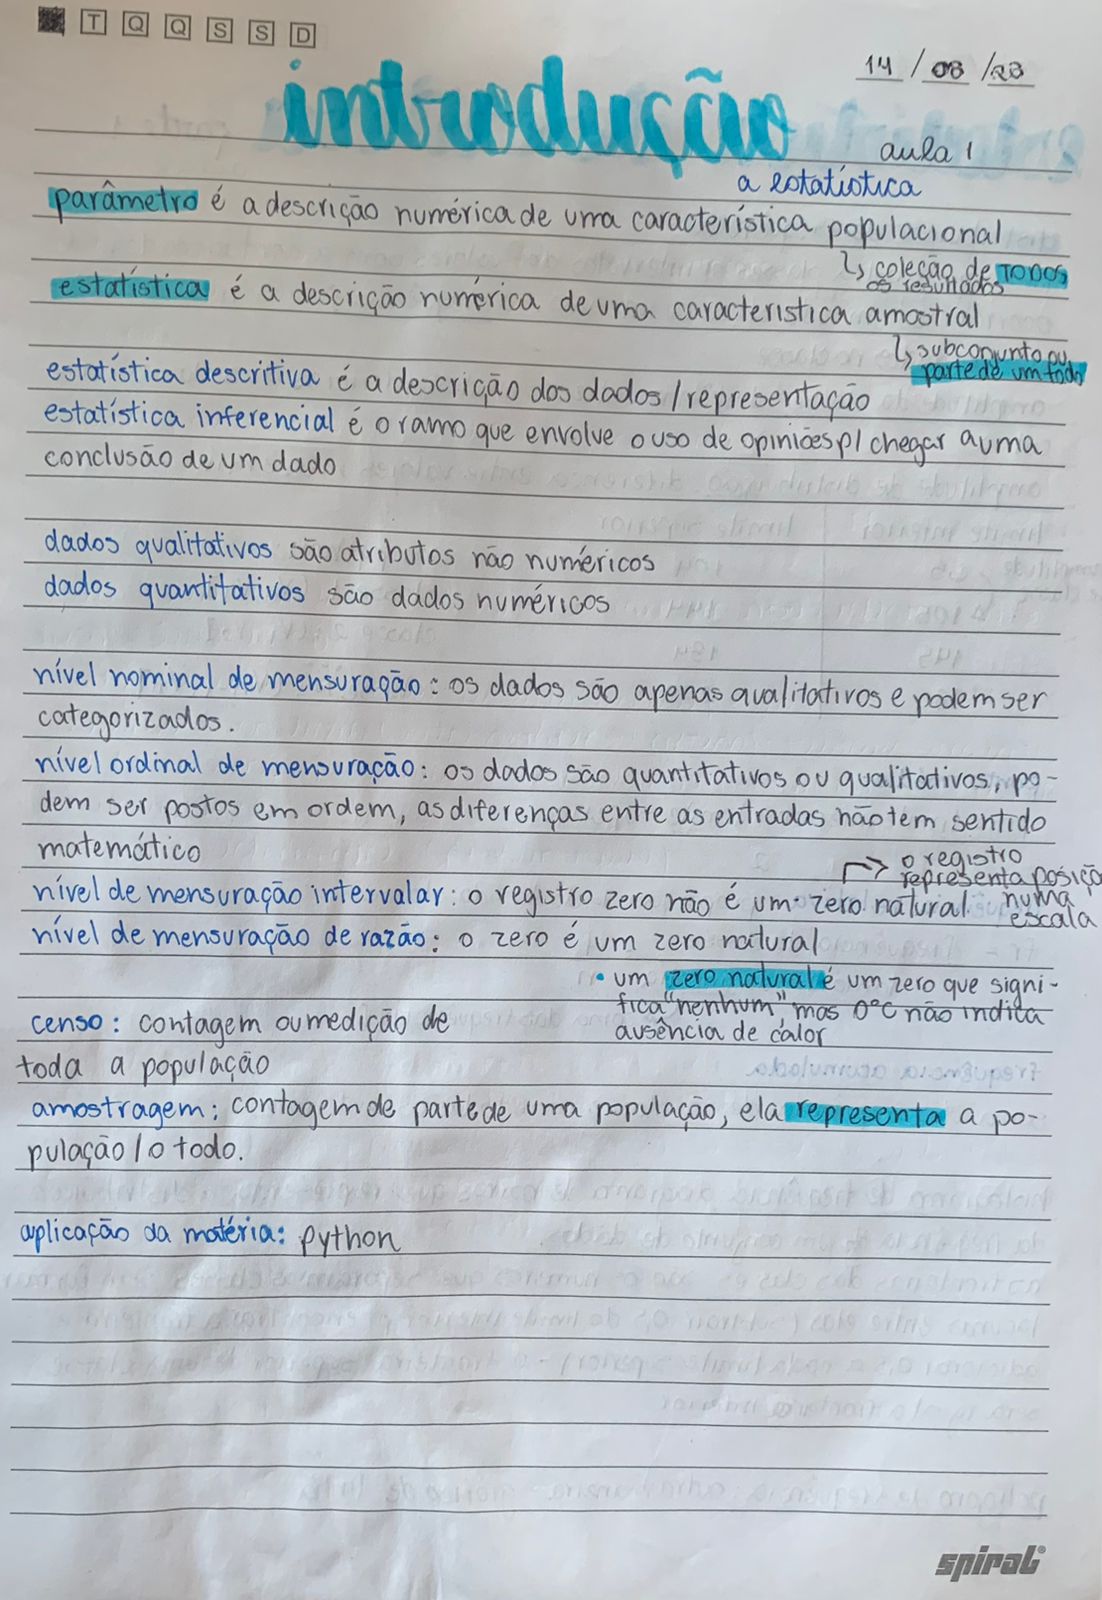 T Q Q S S D
14/08/23
introdução
aula 1
a estatística
parâmetro é a descrição numérica de uma característica populacional
↳ coleção de TODOS
os resultados
estatística é a descrição numérica de uma caracteristica amostral
↳ subconjunto ou
parte de um todo
estatística descritiva é a descrição dos dados/representação
estatística inferencial é o ramo que envolve o uso de opiniões p/ chegar a uma
conclusão de um dado
dados qualitativos são atributos não numéricos
dados quantitativos são dados numéricos
nível nominal de mensuração: os dados são apenas qualitativos e podem ser
categorizados.
nível ordinal de mensuração: os dados são quantitativos ou qualitativos, po-
dem ser postos em ordem, as diferenças entre as entradas não tem sentido
matemático
→ o registro
representa posição
numa
escala
nível de mensuração intervalar: o registro zero não é um zero natural
nível de mensuração de razão: o zero é um zero natural
• um zero natural é um zero que signi-
fica "nenhum" mas 0°C não indica
ausência de calor
censo: contagem ou medição de
toda a população
amostragem: contagem de parte de uma população, ela representa a po-
pulação/o todo.
aplicação da matéria: python
spiral